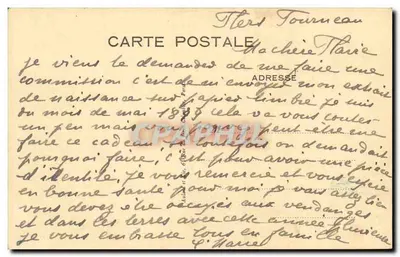 Flers Tourneau
CARTE POSTALE
Ma chère Marie
ADRESSE
je viens te demander de me faire une
commission c'est de m'envoyer mon extrait
de naissance sur papier timbré je suis
du mois de mai 1889 cela va vous coûter
un peu mais
faire ce cadeau on demandait
pourquoi faire, c'est pour avoir une pièce
d'identité. Je vous remercie et vous espère
en bonne santé pour moi je vais assez bien
vous devez être occupés aux vendanges
et dans les terres avec cette année
je vous embrasse tous en famille